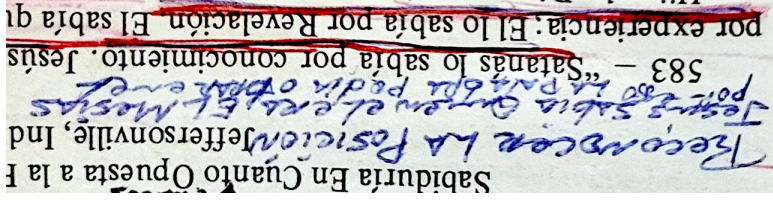 Sabiduría En Cuanto Opuesta a la F
Reconocer LA POSICION Jeffersonville, Ind
Jesus Sabia Quien el era, EL Mesias
por eso LA PALABRA podia obrar en el
583 – “Satanás lo sabía por conocimiento. Jesús
por experiencia; El lo sabía por Revelación. El sabía qu